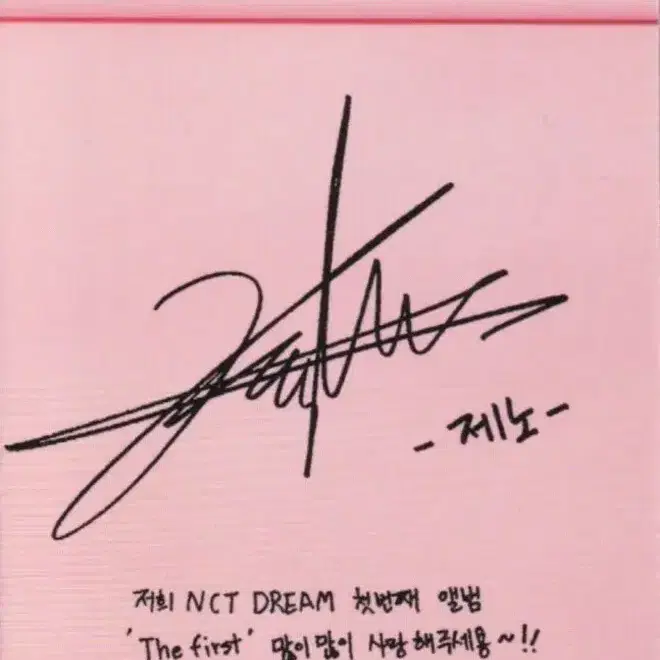 - 제노 -
저희 NCT DREAM 첫번째 앨범
'The first' 많이많이 사랑해주세용~!!